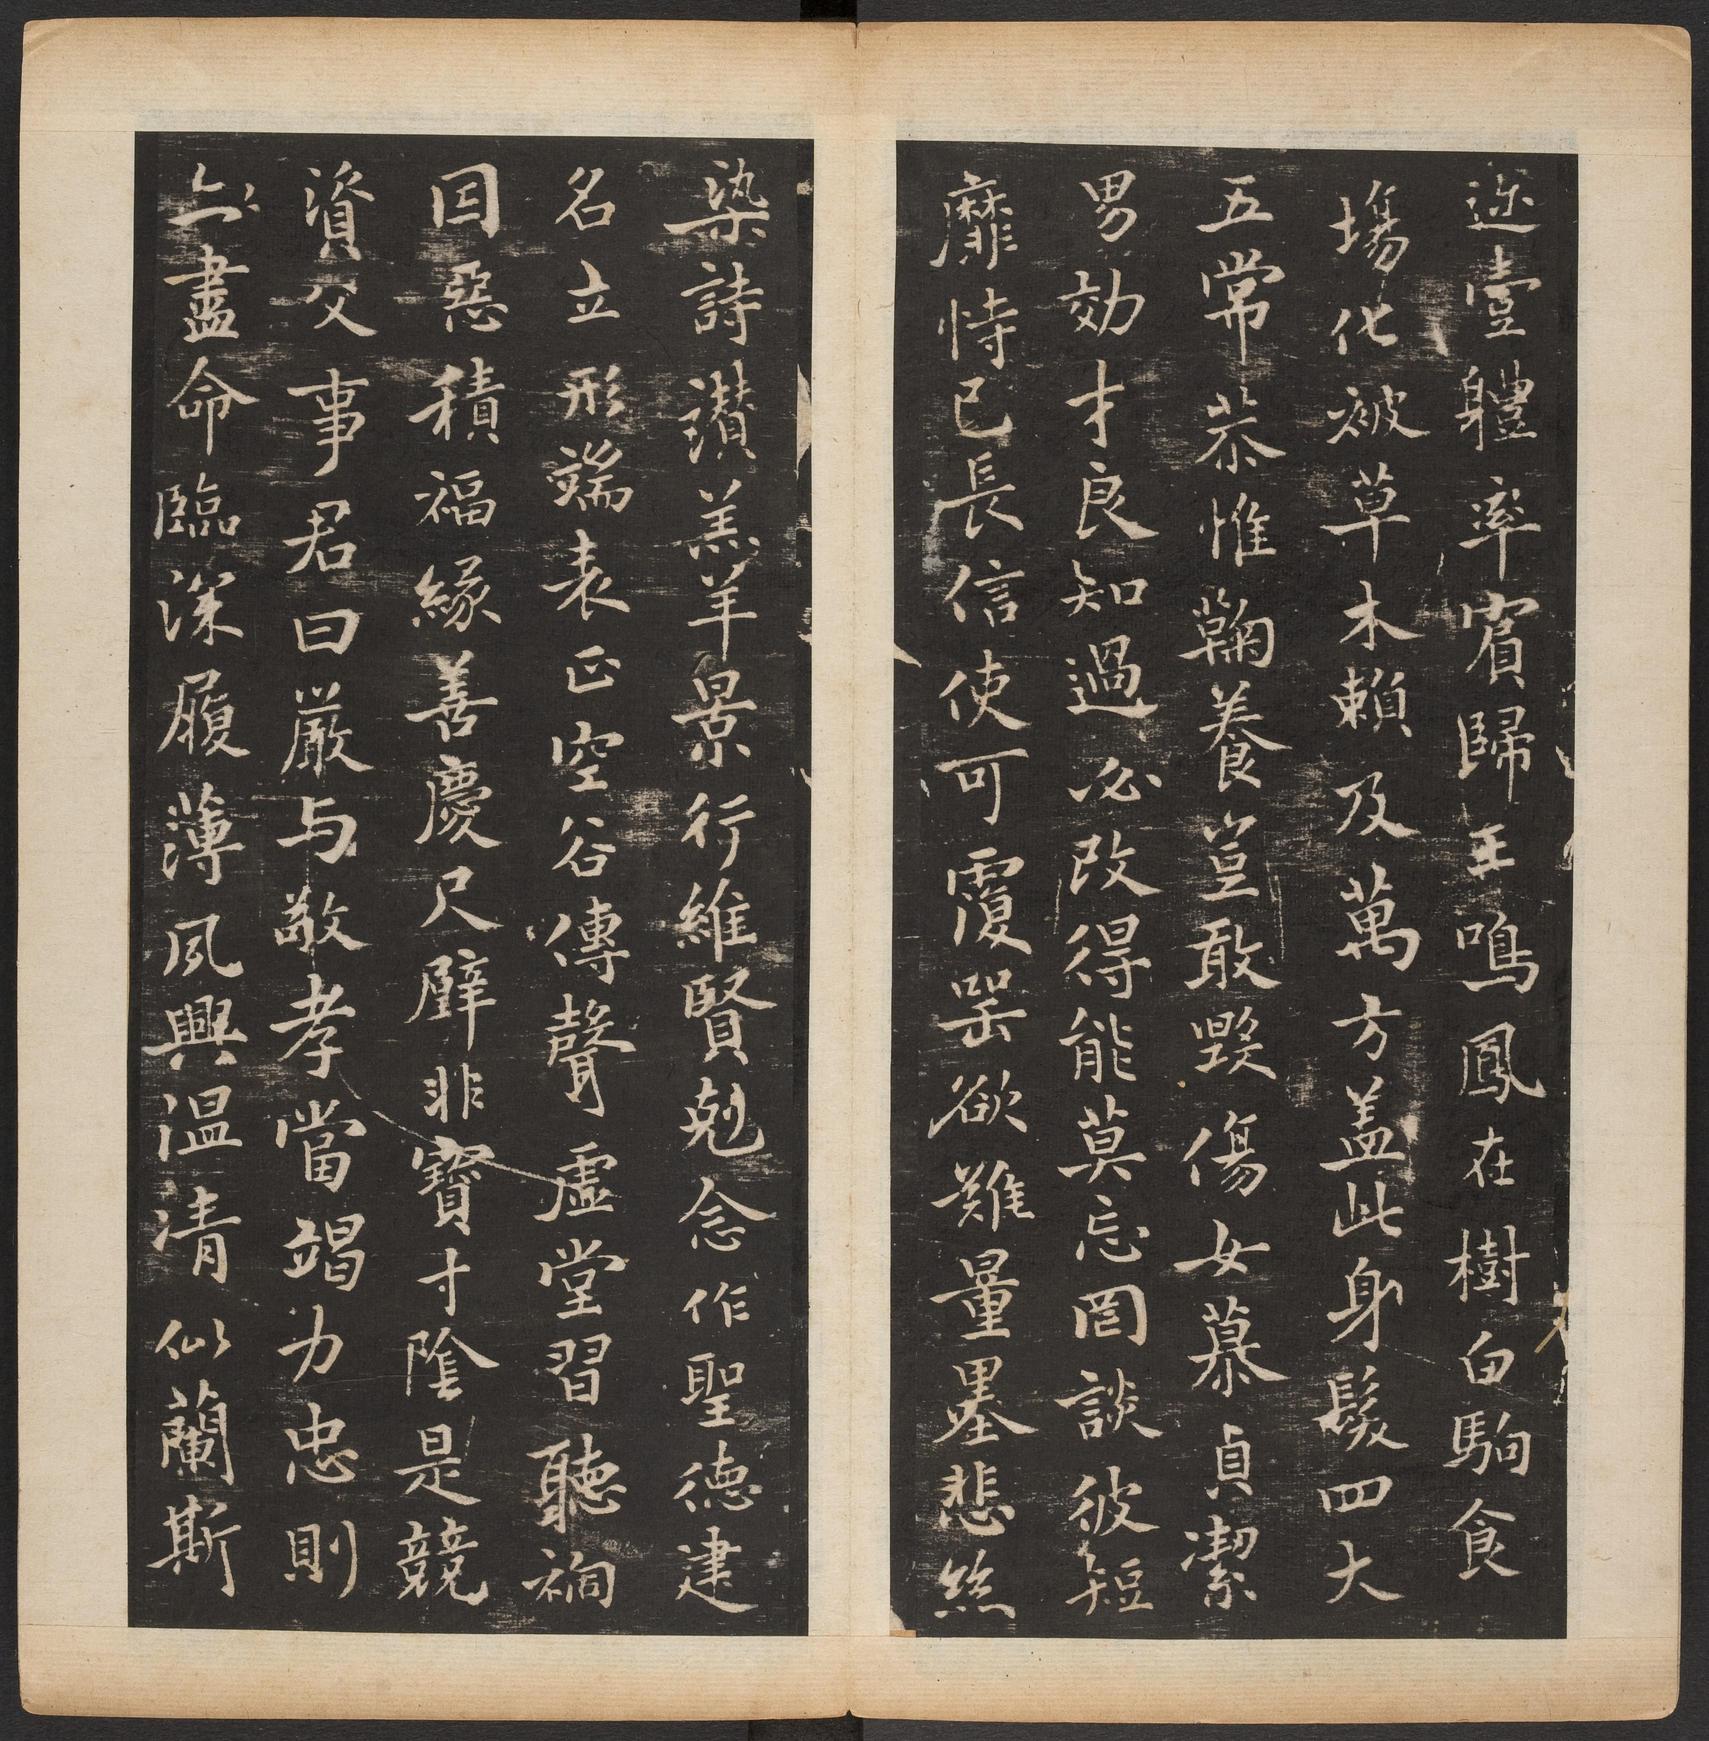 迩壹軆率賓歸王鳴鳳在樹白駒食
場化被草木賴及萬方盖此身髮四大
五常恭惟鞠養豈敢毀傷女慕貞潔
男効才良知過必改得能莫忘罔談彼短
靡恃己長信使可覆器欲難量墨悲絲
染詩讃羔羊景行維賢剋念作聖德建
名立形端表正空谷傳聲虛堂習聽禍
因惡積福緣善慶尺璧非寶寸陰是競
資父事君曰嚴与敬孝當竭力忠則
盡命臨深履薄夙興溫清似蘭斯